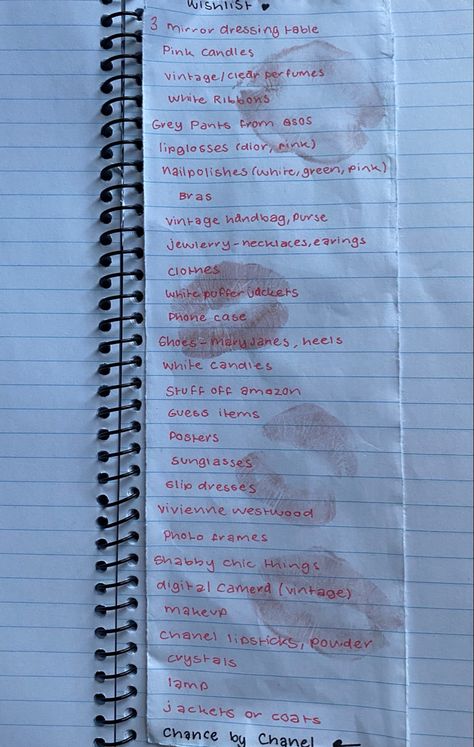 Wishlist ♥
3 mirror dressing table
Pink candles
vintage/clear perfumes
white Ribbons
Grey Pants from asos
lipglosses (dior, pink)
nailpolishes (white, green, pink)
Bras
vintage handbag, purse
jewlerry - necklaces, earings
clothes
white puffer jackets
Phone case
Shoes - mary janes, heels
White candles
Stuff off amazon
Guess items
Posters
Sunglasses
Slip dresses
Vivienne westwood
Photo frames
Shabby chic things
digital camera (vintage)
makeup
Chanel lipsticks, powder
crystals
lamp
jackets or coats
Chance by Chanel ←